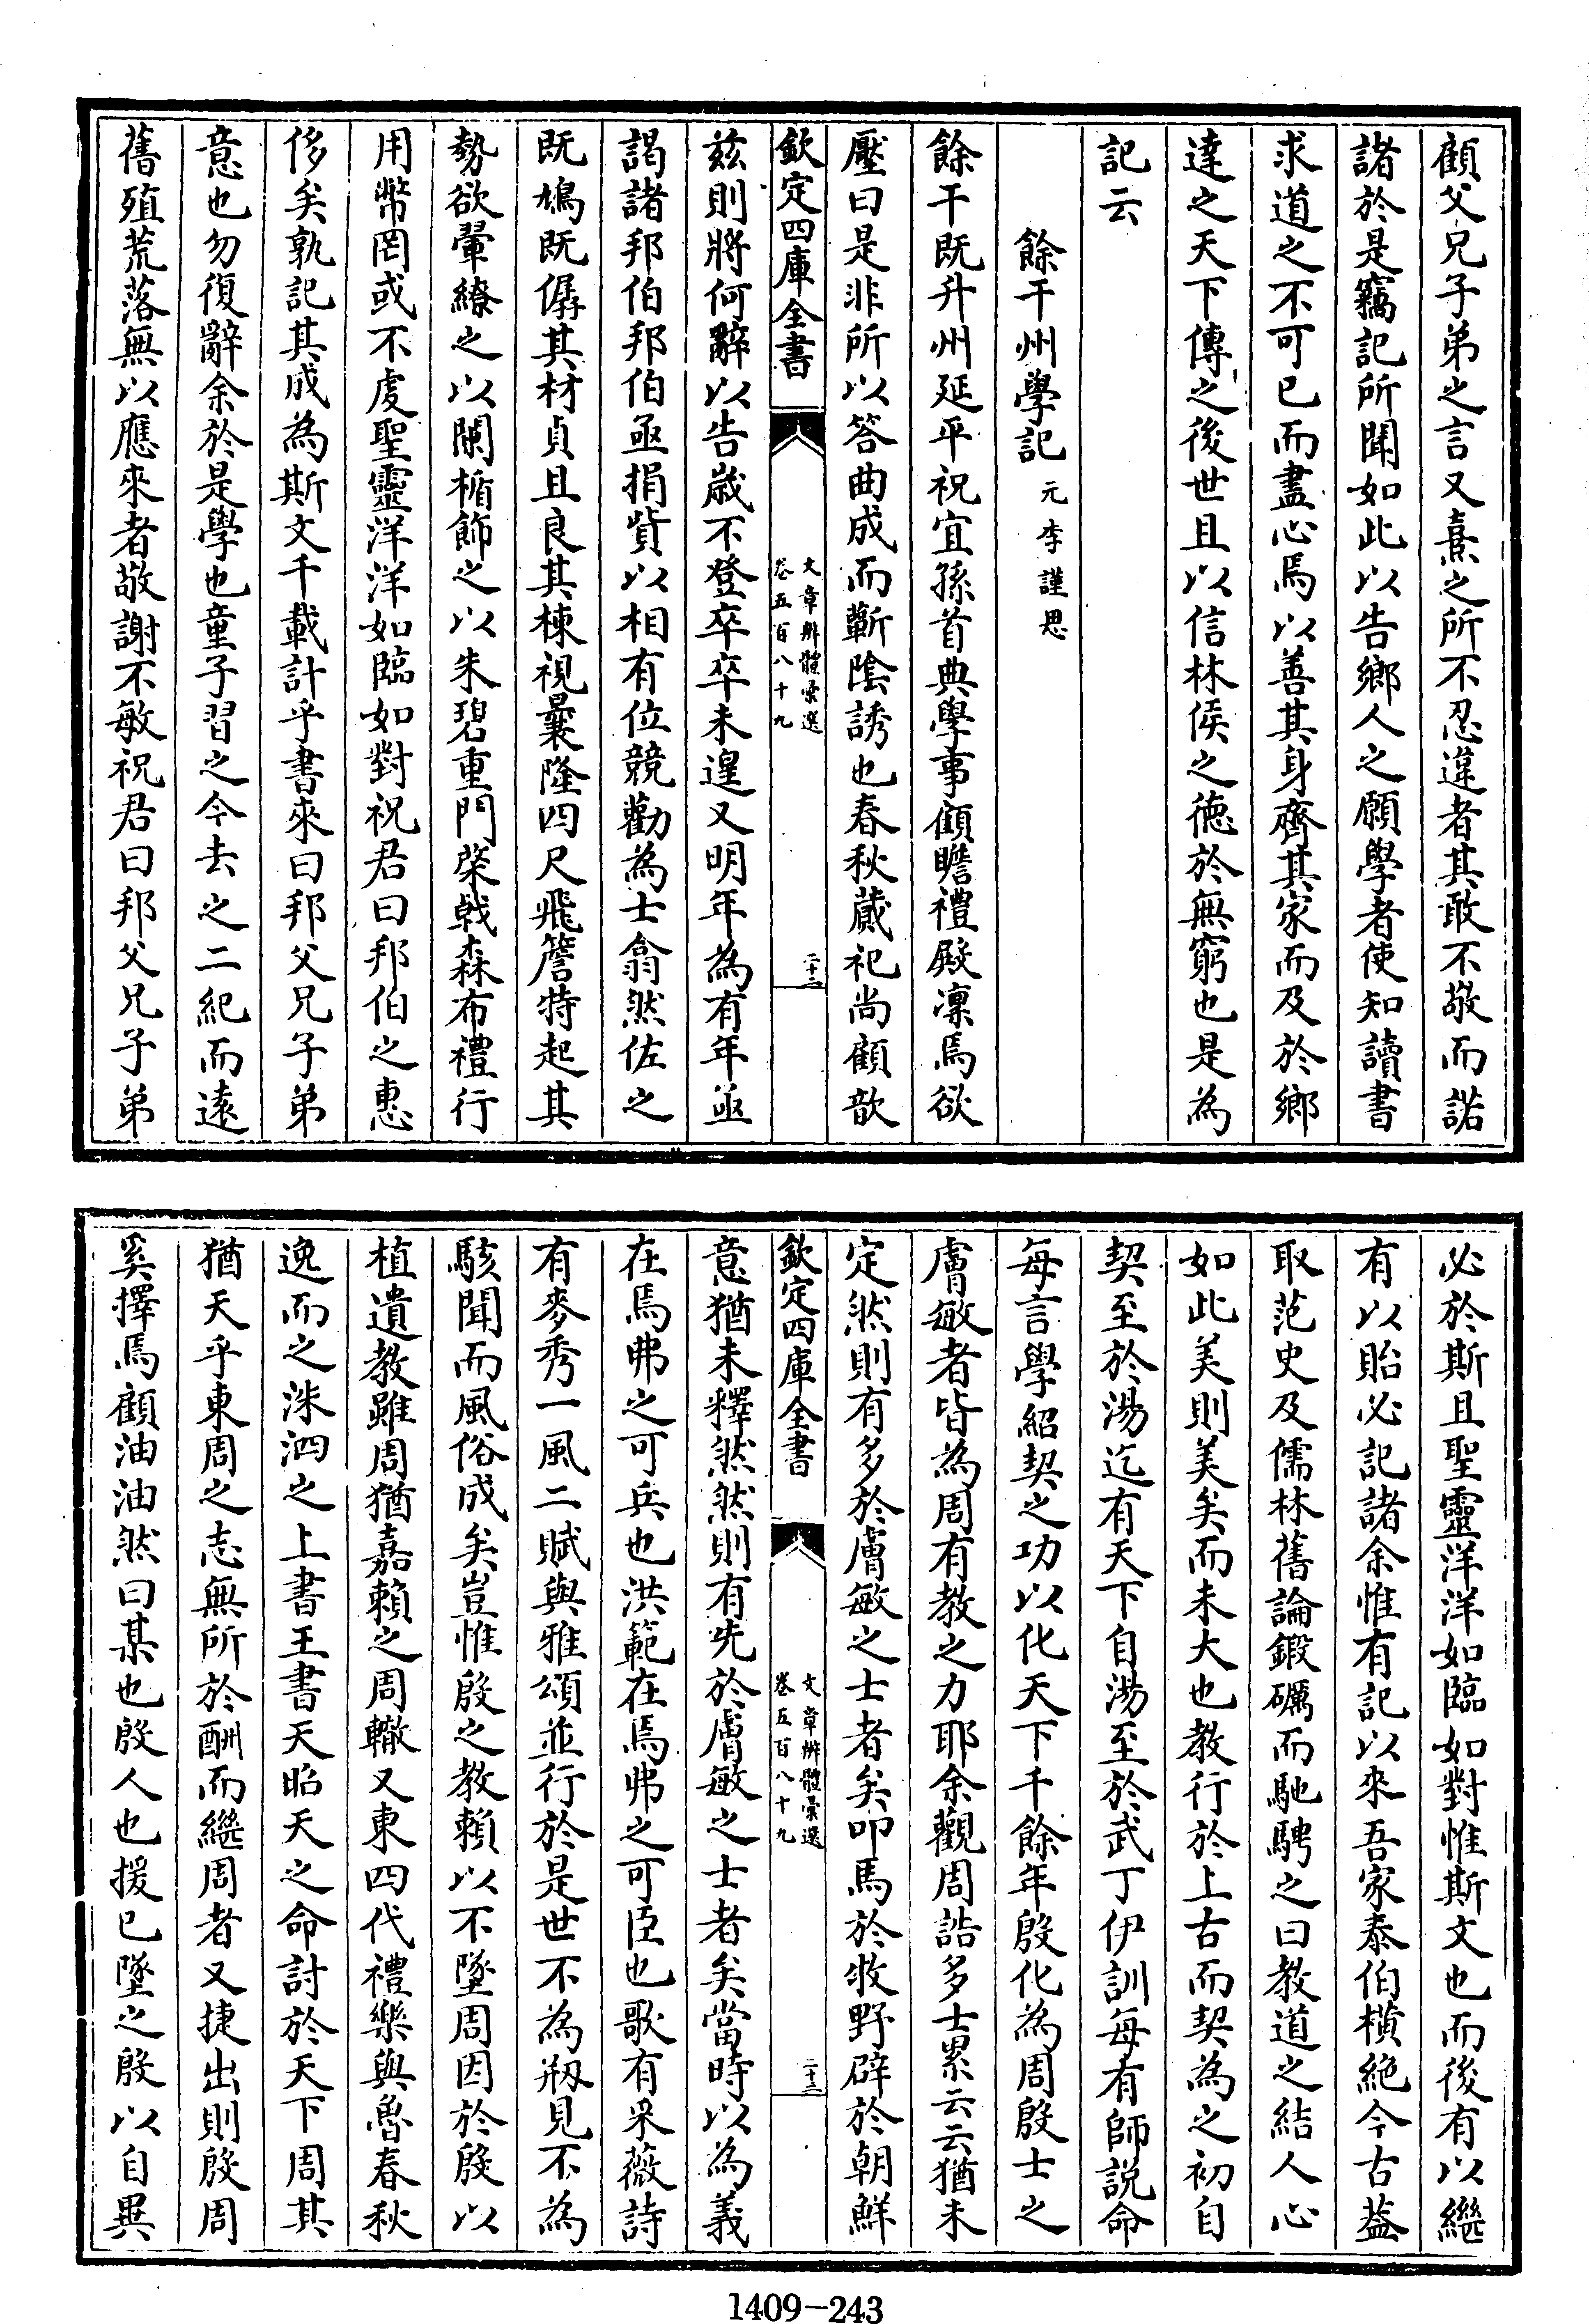 顧父兄子弟之言又熹之所不忍違者其敢不敬而諾
諸於是竊記所聞如此以告鄉人之願學者使知讀書
求道之不可已而盡心焉以善其身齊其家而及於鄉
達之天下傳之後世且以信林侯之德於無窮也是為
記云
餘干州學記 元李謹思
餘干既升州延平祝宜孫首典學事顧瞻禮殿凜焉欲
壓曰是非所以答曲成而蘄陰誘也春秋蕆祀尚顧歆
欽定四庫全書
文章辨體彙選
卷五百八十九
二十二
兹則將何辭以告歲不登卒卒未遑又明年為有年亟
謁諸邦伯邦伯亟捐貲以相有位競勸為士翕然佐之
既鳩既僝其材貞且良其棟視曩隆四尺飛簷特起其
勢欲翬繚之以闌楯飾之以朱碧重門棨戟森布禮行
用幣罔或不虔聖靈洋洋如臨如對祝君曰邦伯之惠
侈矣孰記其成為斯文千載計乎書來曰邦父兄子弟
意也勿復辭余於是學也童子習之今去之二紀而遠
舊殖荒落無以應來者敬謝不敏祝君曰邦父兄子弟
必於斯且聖靈洋洋如臨如對惟斯文也而後有以繼
有以貽必記諸余惟有記以來吾家泰伯橫絶今古葢
取范史及儒林舊論鍛礪而馳騁之曰教道之結人心
如此美則美矣而未大也教行於上古而契為之初自
契至於湯迄有天下自湯至於武丁伊訓每有師説命
每言學紹契之功以化天下千餘年殷化為周殷士之
膚敏者皆為周有教之力耶余觀周誥多士累云云猶未
定然則有多於膚敏之士者矣叩馬於牧野辟於朝鮮
欽定四庫全書
文章辨體彙選
卷五百八十九
二十三
意猶未釋然然則有先於膚敏之士者矣當時以為義
在焉弗之可兵也洪範在焉弗之可臣也歌有采薇詩
有麥秀一風二賦與雅頌並行於是世不為剏見不為
駭聞而風俗成矣豈惟殷之教賴以不墜周因於殷以
植遺教雖周猶嘉賴之周轍又東四代禮樂與魯春秋
逸而之洙泗之上書王書天昭天之命討於天下周其
猶天乎東周之志無所於酬而繼周者又捷出則殷周
奚擇焉顧油油然曰某也殷人也援已墜之殷以自異
1409-243